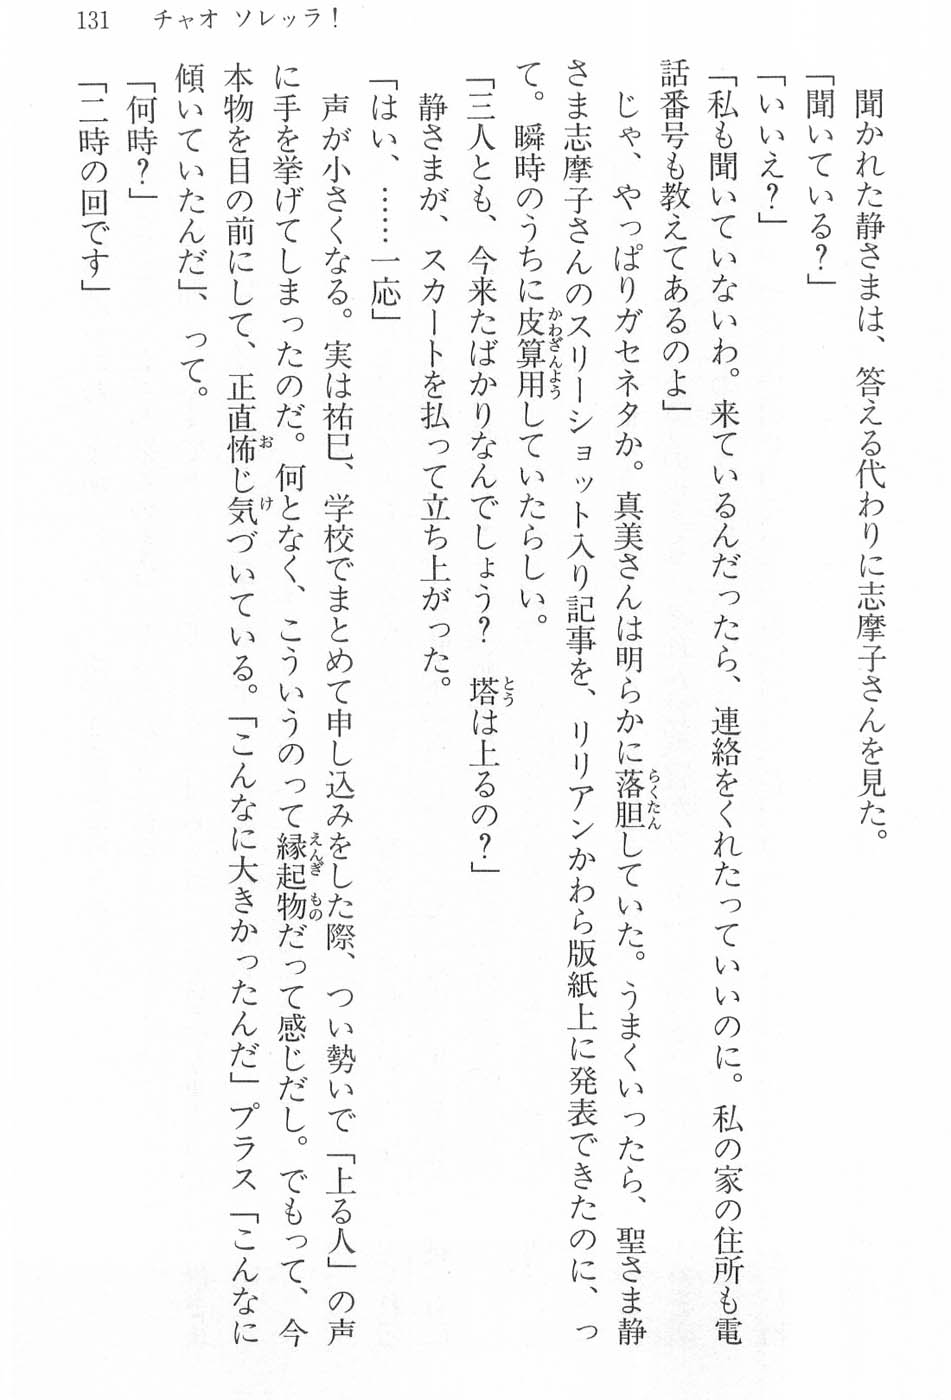 131　チャオ ソレッラ！
　聞かれた静さまは、答える代わりに志摩子さんを見た。
「聞いている？」
「いいえ？」
「私も聞いていないわ。来ているんだったら、連絡をくれたっていいのに。私の家の住所も電
話番号も教えてあるのよ」
　じゃ、やっぱりガセネタか。真美さんは明らかに落胆していた。うまくいったら、聖さま静
さま志摩子さんのスリーショット入り記事を、リリアンかわら版紙上に発表できたのに、っ
て。瞬時のうちに皮算用していたらしい。
「三人とも、今来たばかりなんでしょう？　塔は上るの？」
　静さまが、スカートを払って立ち上がった。
「はい、……一応」
　声が小さくなる。実は祐巳、学校でまとめて申し込みをした際、つい勢いで「上る人」の声
に手を挙げてしまったのだ。何となく、こういうのって縁起物だって感じだし。でもって、今
本物を目の前にして、正直怖じ気づいている。「こんなに大きかったんだ」プラス「こんなに
傾いていたんだ」、って。
「何時？」
「二時の回です」